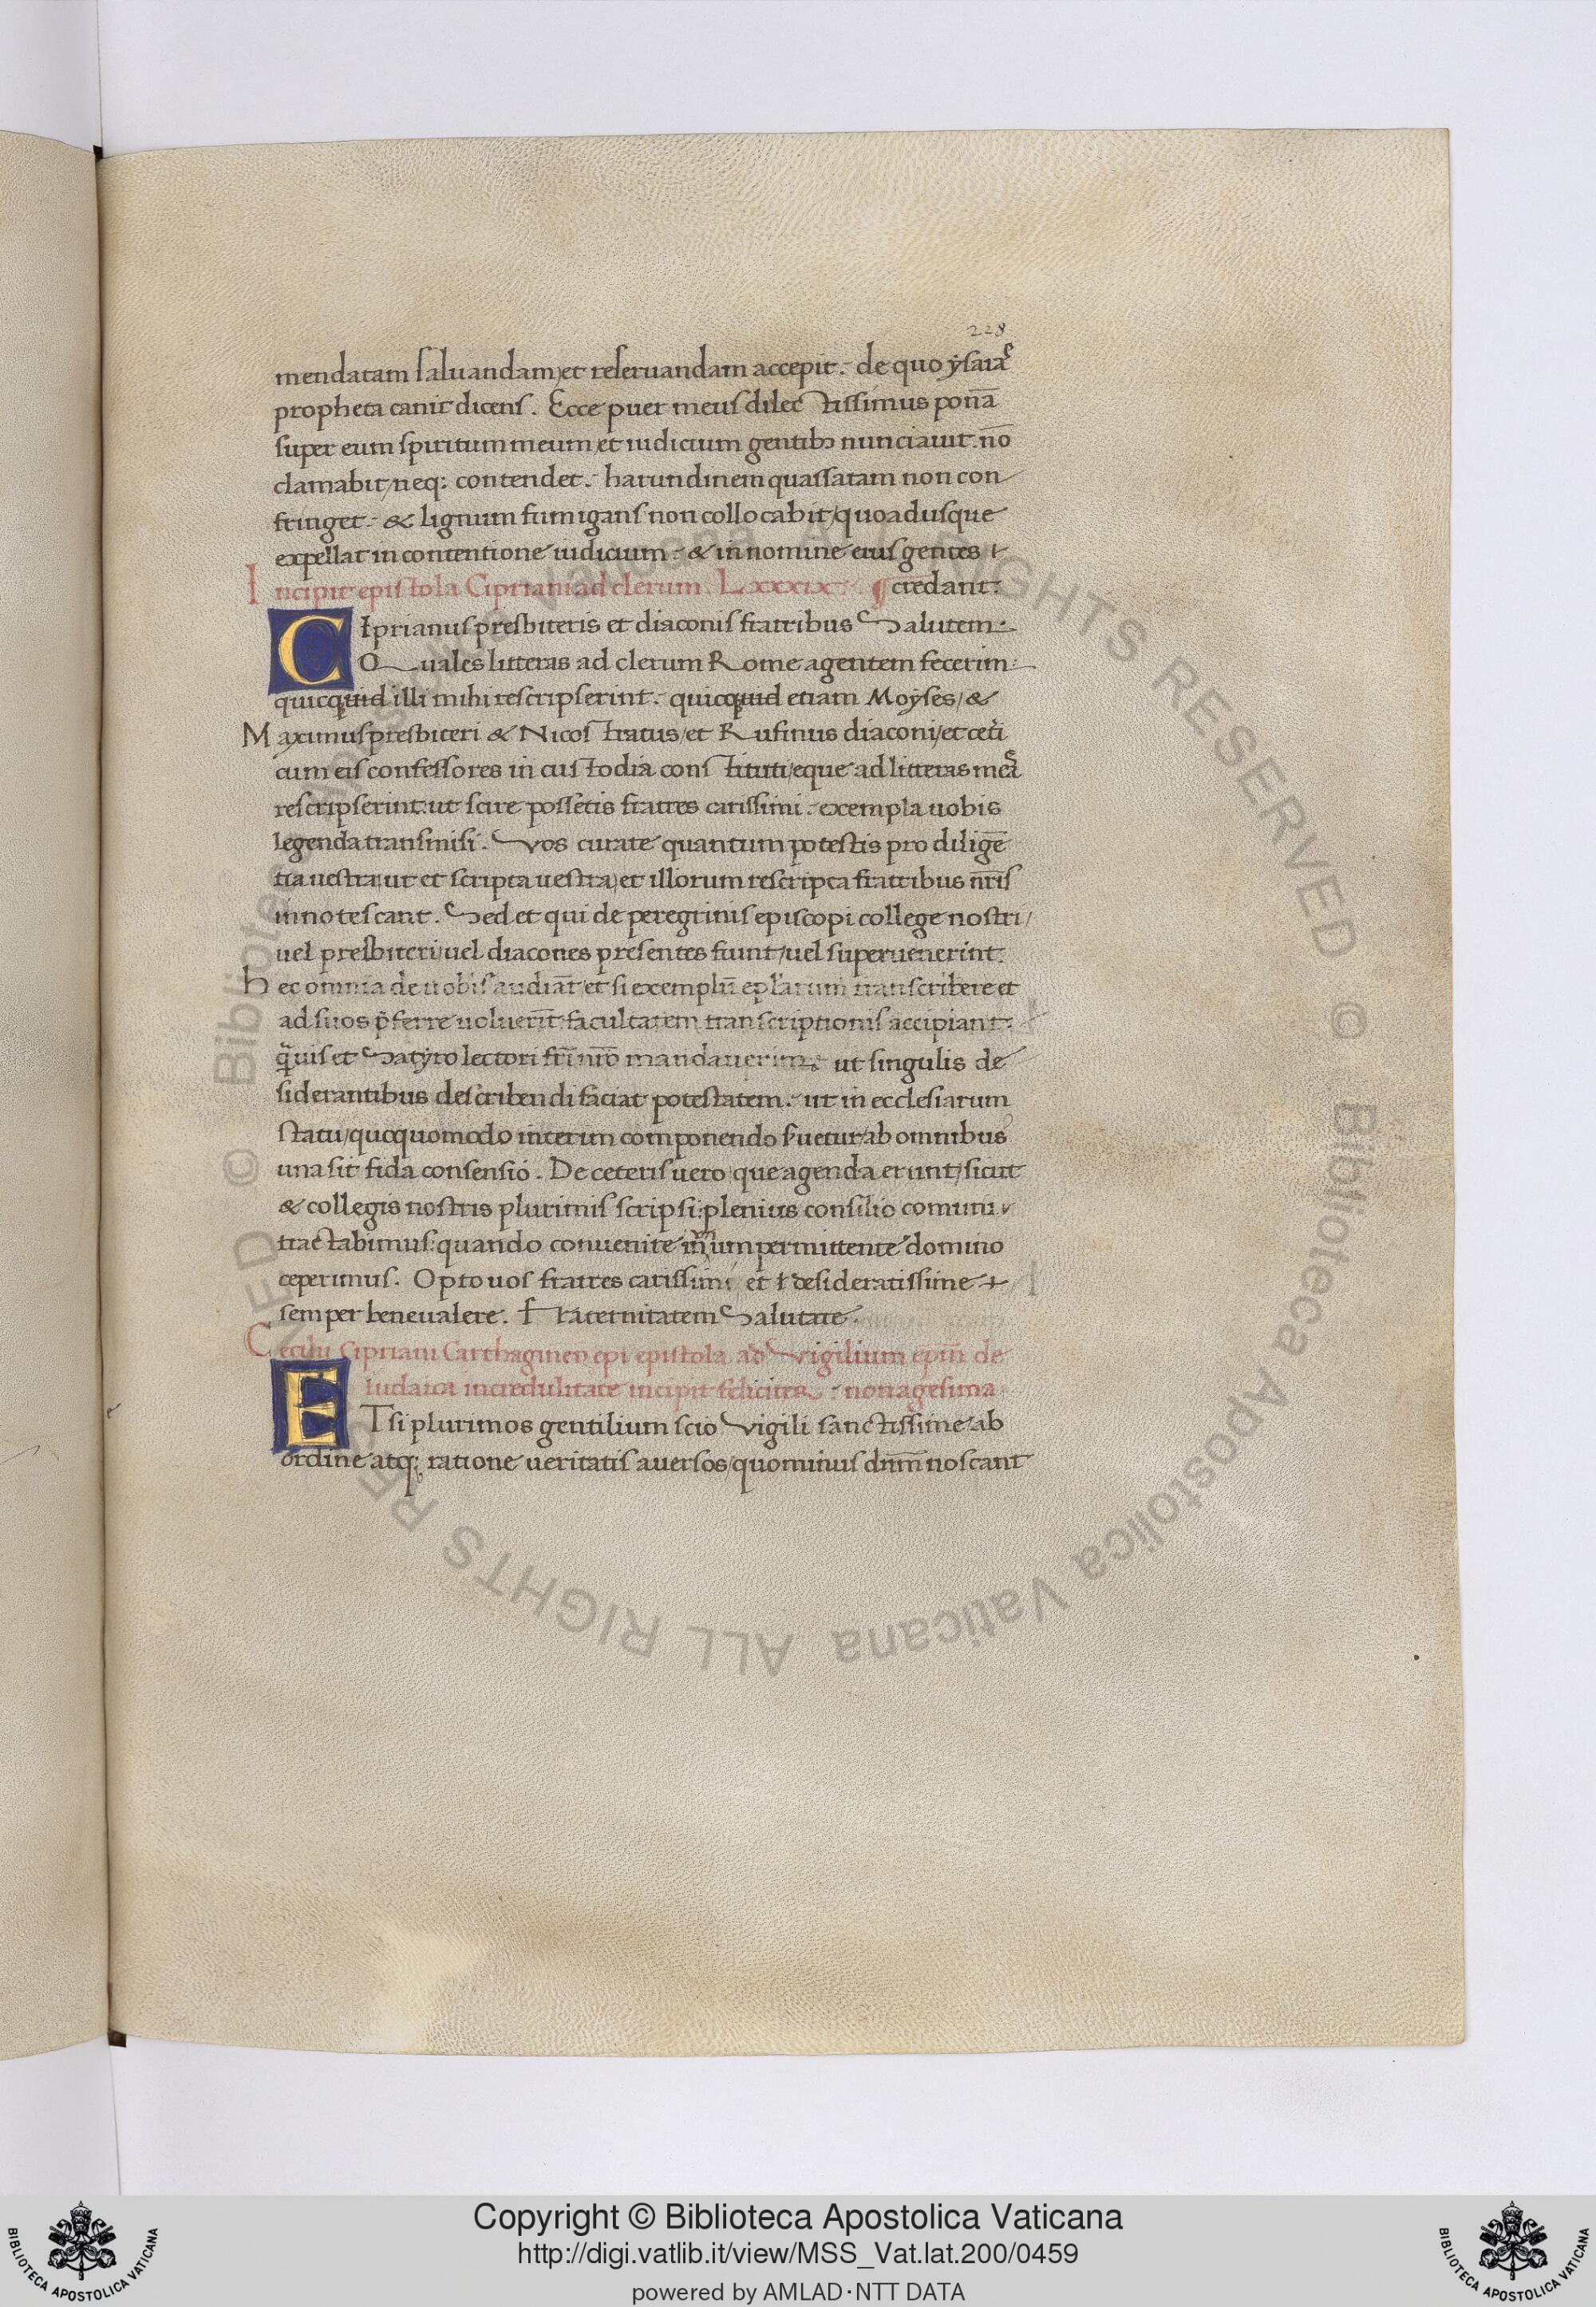 228
mendatam saluandam, et reseruandam accepit. de quo ysaias
propheta canit dicens. Ecce puer meus dilectissimus ponā
super eum spiritum meum, et iudicium gentibꝫ nunciauit. nō
clamabit, neq: contendet. harundinem quassatam non con
fringet. & lignum fumigans non collocabit, quoadusque
expellat in contentione iudicium. & in nomine eius gentes
Incipit epistola Cipriani ad clerum. Lxxxix. ¶ credant:
CIprianus presbiteris et diaconis fratribus Salutem.
Quales litteras ad clerum Rome agentem fecerim:
quicquid illi mihi rescripserint. quicquid etiam Moyses, &
Maximus presbiteri & Nicostratus, et Rufinus diaconi, et ceťi
cum eis confessores in custodia constituti, eque ad litteras meas
rescripserint. ut scire possetis fratres carissimi. exempla uobis
legenda transmisi. Vos curate quantum potestis pro diligē
tia uestra, ut et scripta uestra, et illorum rescripta fratribus nr̄is
innotescant. Sed et qui de peregrinis episcopi college nostri,
uel presbiteri, uel diacones presentes fiunt, uel superuenerint.
hec omnia de uobis audiāt, et si exemplū epl'arum transcribere et
ad suos p̄ferre uoluerīt, facultatem transcriptionis accipiant.
q̄uis et Satyro lectori fr̄i nr̄o mandauerim, ut singulis de
siderantibus describendi faciat potestatem. ut in ecclesiarum
statu, quoquomodo interim componendo suetur, ab omnibus
una sit fida consensio. De ceteris uero, que agenda erunt, sicut
& collegis nostris plurimis scripsi: plenius consilio comuni
tractabimus: quando conuenire in unum permittente domino
ceperimus. Opto uos fratres carissimi et desideratissime
semper bene ualere. Fraternitatem Salutate.
Cecilii Cipriani Carthaginen̄ ep̄i epistola ad Vigilium ep̄m de
Iudaica incredulitate incipit feliciter: nonagesima
ETsi plurimos gentilium scio Vigili sanctissime ab
ordine atq: ratione ueritatis auersos, quominus dn̄m noscant
Copyright © Biblioteca Apostolica Vaticana
http://digi.vatlib.it/view/MSS_Vat.lat.200/0459
powered by AMLAD·NTT DATA
BIBLIOTECA APOSTOLICA VATICANA
BIBLIOTECA APOSTOLICA VATICANA
© Biblioteca Apostolica Vaticana ALL RIGHTS RESERVED © Biblioteca Apostolica Vaticana ALL RIGHTS RESERVED